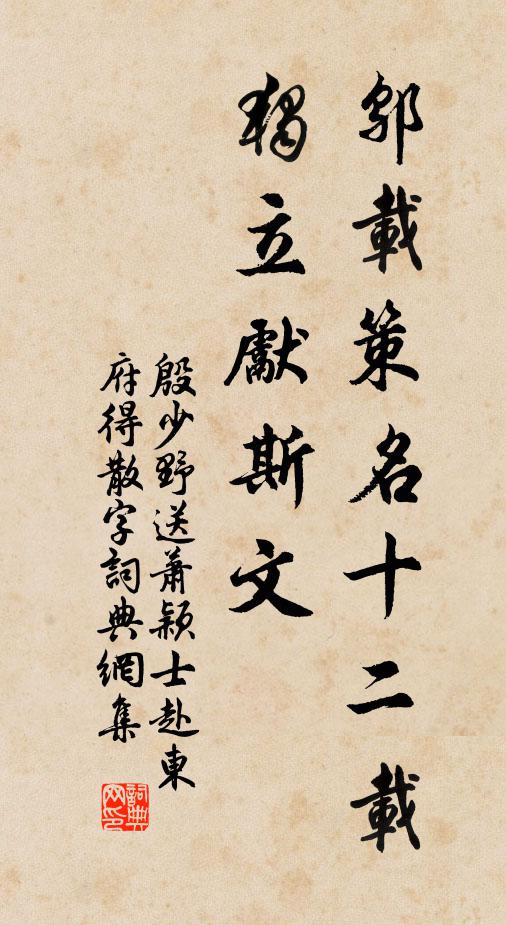 鄔載策名十二載
獨立獻斯文
殷少野送蕭潁士赴東
府得散字詞典網集
詞典
网印